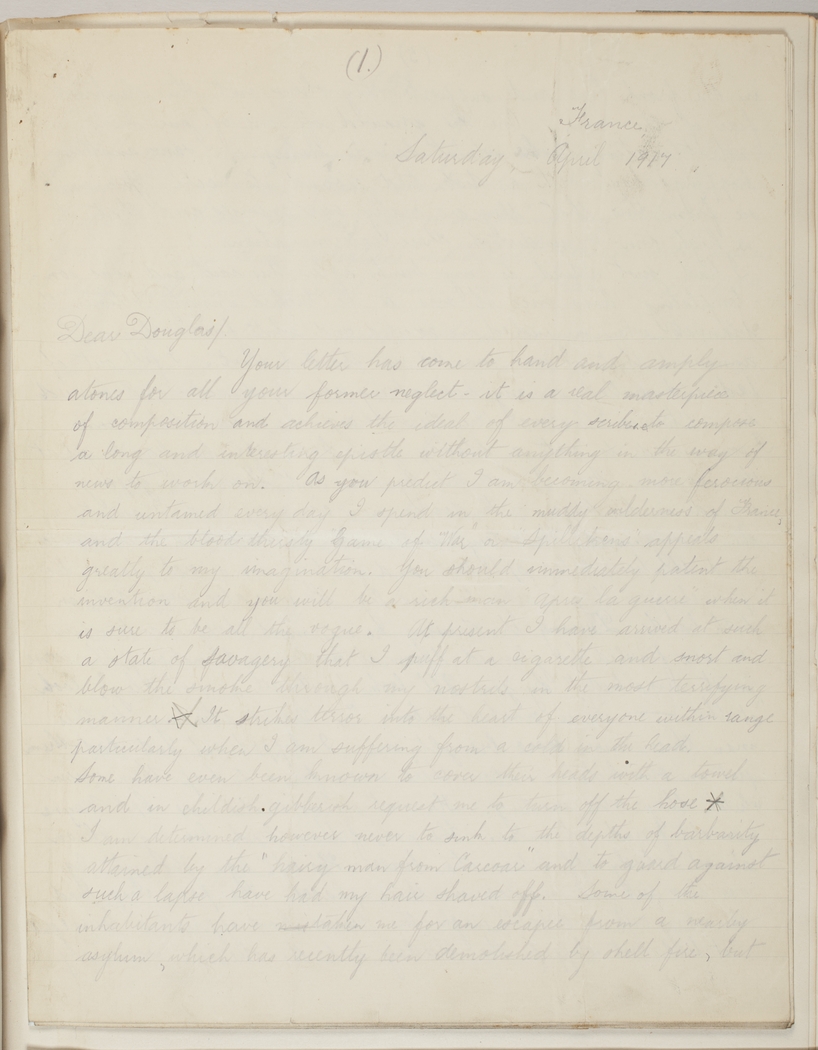 (1.)
France,
Saturday April 1917.
Dear Douglas/
Your letter has come to hand and amply
atones for all your former neglect - it is a real masterpiece
of composition and achieves the ideal of every scribe to compose
a long and interesting epistle without anything in the way of
news to work on. As you predict I am becoming more ferocious
and untamed every day I spend in the muddy wilderness of France,
and the bloodthirsty "Game of War" or appeals
greatly to my imagination. You should immediately patent the
invention and you will be a rich man "apres la guerre" when it
is sure to be all the rogue. At present I have arrived at such
a state of savagery that I puff at a cigarette and snort and
blow the smoke through my nostrils in the most terrifying
manner * It strikes terror into the heart of everyone within range
particularly when I am suffering from a cold in the head.
Some have even been known to cover their heads with a towel
and in childish gibberish request me to turn off the hose *
I am determined however never to sink to the depths of barbarity
attained by the "hairy man from Carcoar" and to guard against
such a lapse have had my hair shaved off. Some of the
inhabitants have mistaken me for an escapee from a nearby
asylum, which has recently been demolished by shell fire, but